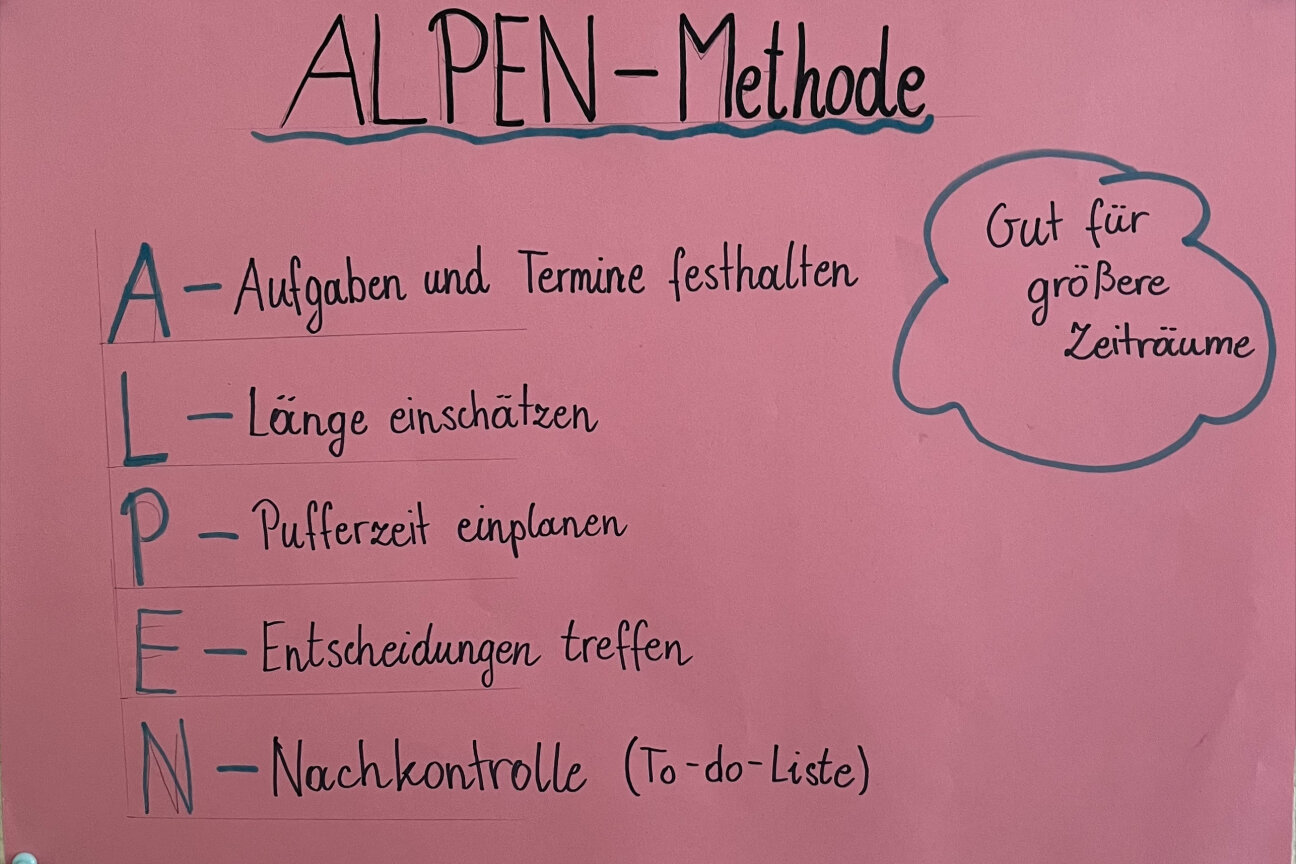 ALPEN-Methode
A - Aufgaben und Termine festhalten
Gut für
größere
Zeiträume
L - Länge einschätzen
P - Pufferzeit einplanen
E - Entscheidungen treffen
N - Nachkontrolle (To-do-Liste)